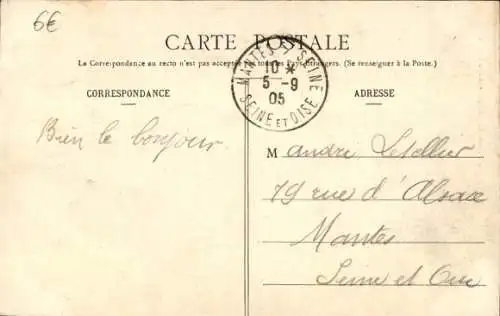 6€
CARTE POSTALE
La Correspondance au recto n'est pas acceptée par tous les Pays étrangers. (Se renseigner à la Poste.)
MANTES S / SEINE
10 *
5 - 9
05
SEINE ET OISE
CORRESPONDANCE
ADRESSE
Bien le bonjour
M andré Letellier
79 rue d'Alsace
Mantes
Seine et Oise